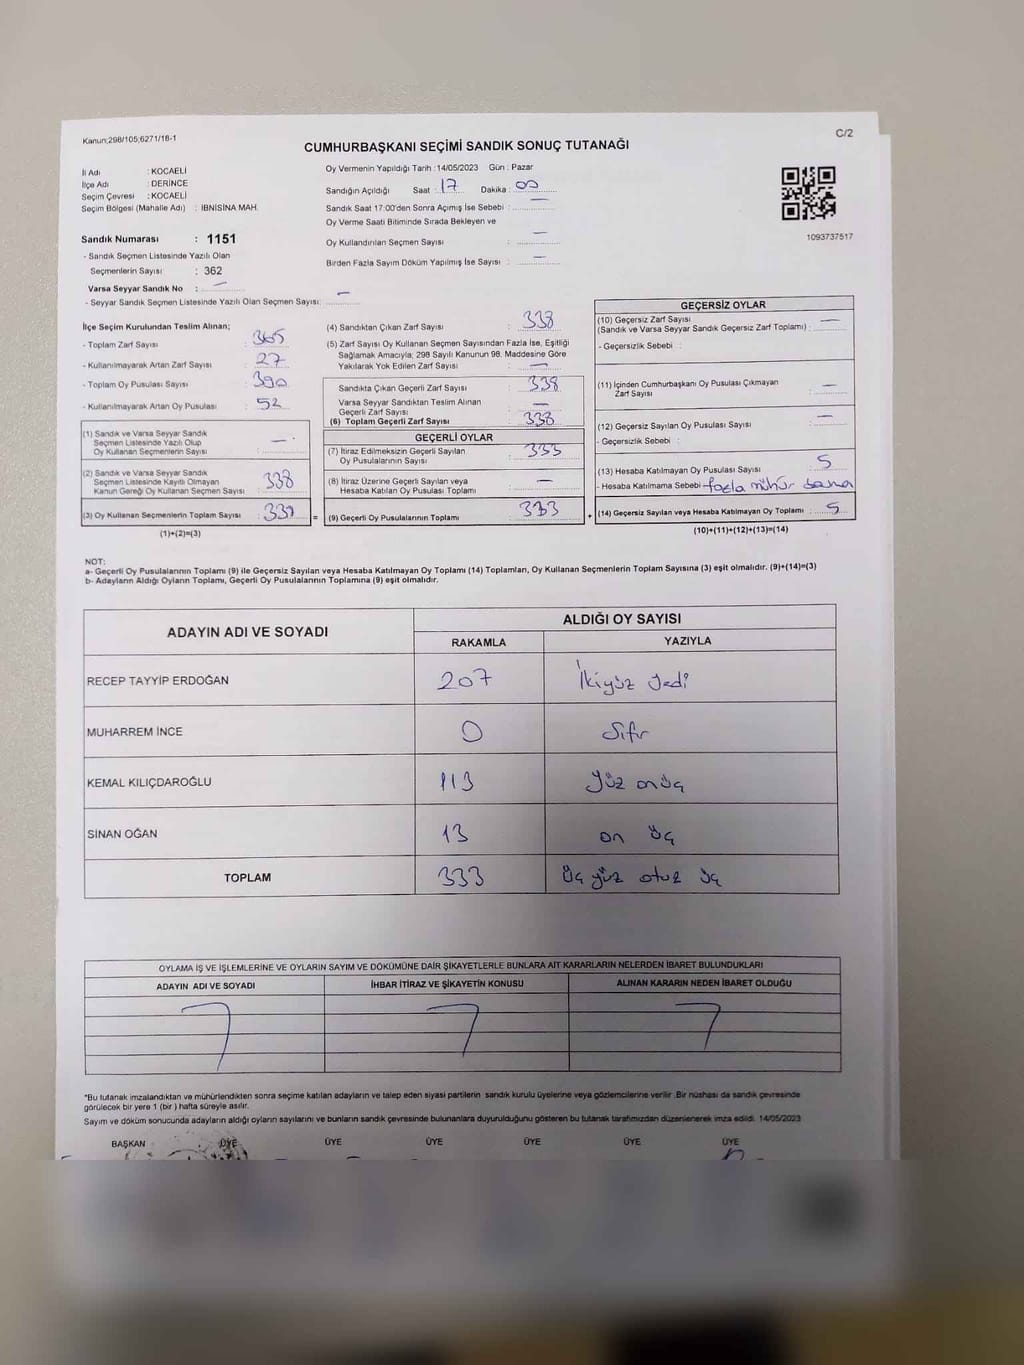 Kanun;298/105;6271/18-1
C/2
CUMHURBAŞKANI SEÇİMİ SANDIK SONUÇ TUTANAĞI
İl Adı : KOCAELİ
İlçe Adı : DERİNCE
Seçim Çevresi : KOCAELİ
Seçim Bölgesi (Mahalle Adı) : İBNİSİNA MAH.
Sandık Numarası : 1151
- Sandık Seçmen Listesinde Yazılı Olan
Seçmenlerin Sayısı : 362
Varsa Seyyar Sandık No : —
- Seyyar Sandık Seçmen Listesinde Yazılı Olan Seçmen Sayısı: —
Oy Vermenin Yapıldığı Tarih :14/05/2023 Gün : Pazar
Sandığın Açıldığı Saat : 17 Dakika : 00
Sandık Saat 17:00'den Sonra Açımış İse Sebebi : —
Oy Verme Saati Bitiminde Sırada Bekleyen ve
Oy Kullandırılan Seçmen Sayısı : —
Birden Fazla Sayım Döküm Yapılmış İse Sayısı : —
1093737517
İlçe Seçim Kurulundan Teslim Alınan;
- Toplam Zarf Sayısı : 365
- Kullanılmayarak Artan Zarf Sayısı : 27
- Toplam Oy Pusulası Sayısı : 390
- Kullanılmayarak Artan Oy Pusulası : 52
(1) Sandık ve Varsa Seyyar Sandık
Seçmen Listesinde Yazılı Olup
Oy Kullanan Seçmenlerin Sayısı : —
(2) Sandık ve Varsa Seyyar Sandık
Seçmen Listesinde Kayıtlı Olmayan
Kanun Gereği Oy Kullanan Seçmen Sayısı : 338
(3) Oy Kullanan Seçmenlerin Toplam Sayısı : 338 =
(1)+(2)=(3)
(4) Sandıktan Çıkan Zarf Sayısı : 338
(5) Zarf Sayısı Oy Kullanan Seçmen Sayısından Fazla İse, Eşitliği
Sağlamak Amacıyla; 298 Sayılı Kanunun 98. Maddesine Göre
Yakılarak Yok Edilen Zarf Sayısı : —
Sandıkta Çıkan Geçerli Zarf Sayısı : 338
Varsa Seyyar Sandıktan Teslim Alınan
Geçerli Zarf Sayısı : —
(6) Toplam Geçerli Zarf Sayısı : 338
GEÇERLİ OYLAR
(7) İtiraz Edilmeksizin Geçerli Sayılan
Oy Pusulalarının Sayısı : 333
(8) İtiraz Üzerine Geçerli Sayılan veya
Hesaba Katılan Oy Pusulası Toplamı : —
(9) Geçerli Oy Pusulalarının Toplamı : 333 +
GEÇERSİZ OYLAR
(10) Geçersiz Zarf Sayısı
(Sandık ve Varsa Seyyar Sandık Geçersiz Zarf Toplamı) : —
- Geçersizlik Sebebi :
(11) İçinden Cumhurbaşkanı Oy Pusulası Çıkmayan
Zarf Sayısı : —
(12) Geçersiz Sayılan Oy Pusulası Sayısı : —
- Geçersizlik Sebebi :
(13) Hesaba Katılmayan Oy Pusulası Sayısı : 5
- Hesaba Katılmama Sebebi : fazla mühür basma
(14) Geçersiz Sayılan veya Hesaba Katılmayan Oy Toplamı : 5
(10)+(11)+(12)+(13)=(14)
NOT:
a- Geçerli Oy Pusulalarının Toplamı (9) ile Geçersiz Sayılan veya Hesaba Katılmayan Oy Toplamı (14) Toplamları, Oy Kullanan Seçmenlerin Toplam Sayısına (3) eşit olmalıdır. (9)+(14)=(3)
b- Adayların Aldığı Oyların Toplamı, Geçerli Oy Pusulalarının Toplamına (9) eşit olmalıdır.
ADAYIN ADI VE SOYADI
ALDIĞI OY SAYISI
RAKAMLA YAZIYLA
RECEP TAYYİP ERDOĞAN 207 İkiyüz yedi
MUHARREM İNCE 0 Sıfır
KEMAL KILIÇDAROĞLU 113 Yüz onüç
SİNAN OĞAN 13 on üç
TOPLAM 333 Üç yüz otuz üç
OYLAMA İŞ VE İŞLEMLERİNE VE OYLARIN SAYIM VE DÖKÜMÜNE DAİR ŞİKAYETLERLE BUNLARA AİT KARARLARIN NELERDEN İBARET BULUNDUKLARI
ADAYIN ADI VE SOYADI İHBAR İTİRAZ VE ŞİKAYETİN KONUSU ALINAN KARARIN NEDEN İBARET OLDUĞU
*Bu tutanak imzalandıktan ve mühürlendikten sonra seçime katılan adayların ve talep eden siyasi partilerin sandık kurulu üyelerine veya gözlemcilerine verilir .Bir nüshası da sandık çevresinde
görülecek bir yere 1 (bir ) hafta süreyle asılır.
Sayım ve döküm sonucunda adayların aldığı oyların sayılarını ve bunların sandık çevresinde bulunanlara duyurulduğunu gösteren bu tutanak tarafımızdan düzenlenerek imza edildi. 14/05/2023
BAŞKAN ÜYE ÜYE ÜYE ÜYE ÜYE ÜYE